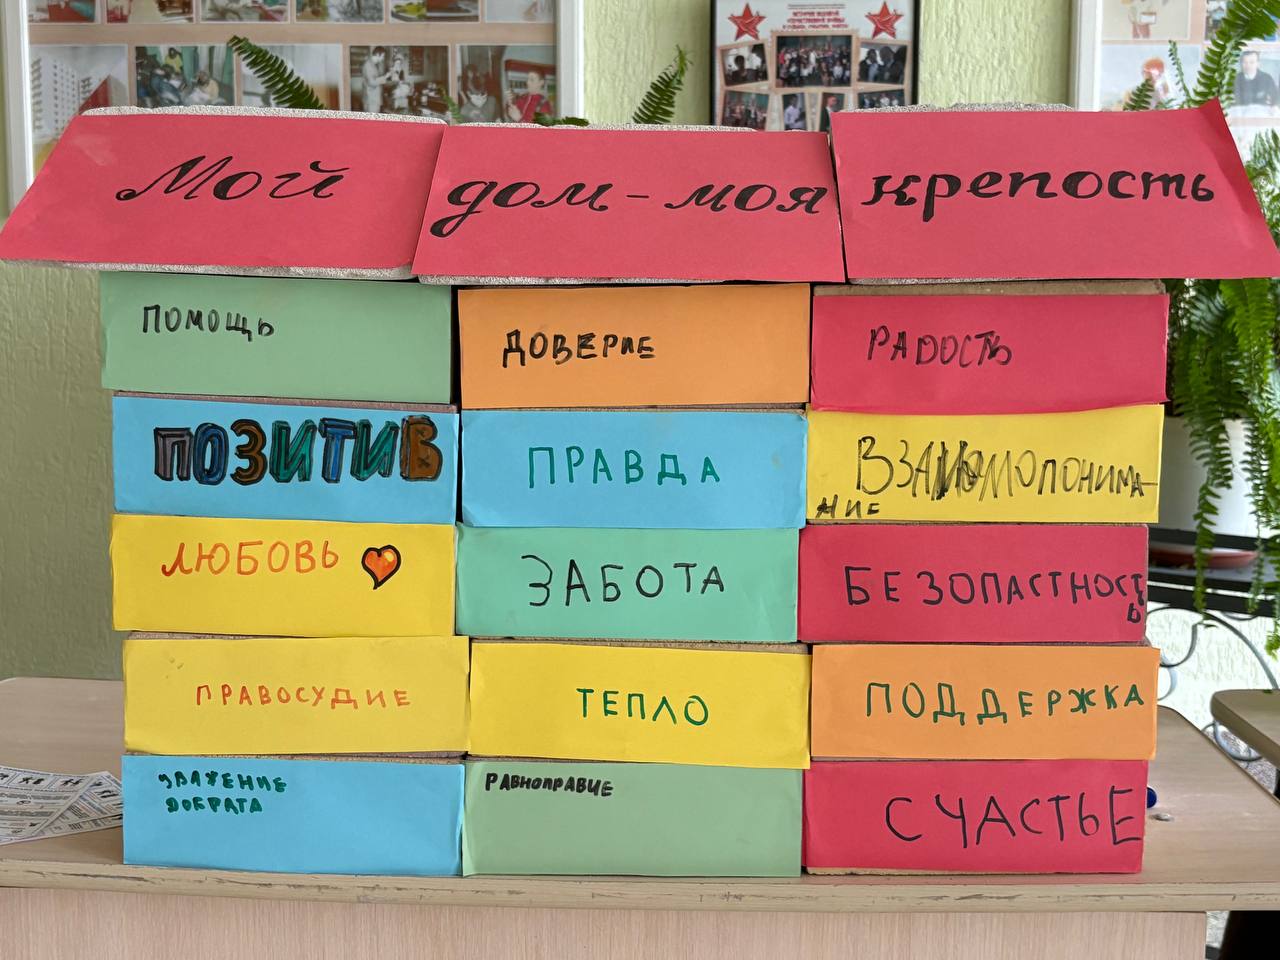 Мой дом - моя крепость
ПОМОЩЬ
ДОВЕРИЕ
РАДОСТЬ
ПОЗИТИВ
ПРАВДА
ВЗАИМОПОНИМА-
НИЕ
ЛЮБОВЬ
ЗАБОТА
БЕЗОПАСТНОСТЬ
ПРАВОСУДИЕ
ТЕПЛО
ПОДДЕРЖКА
УВАЖЕНИЕ
ДОБРАТА
РАВНОПРАВИЕ
СЧАСТЬЕ